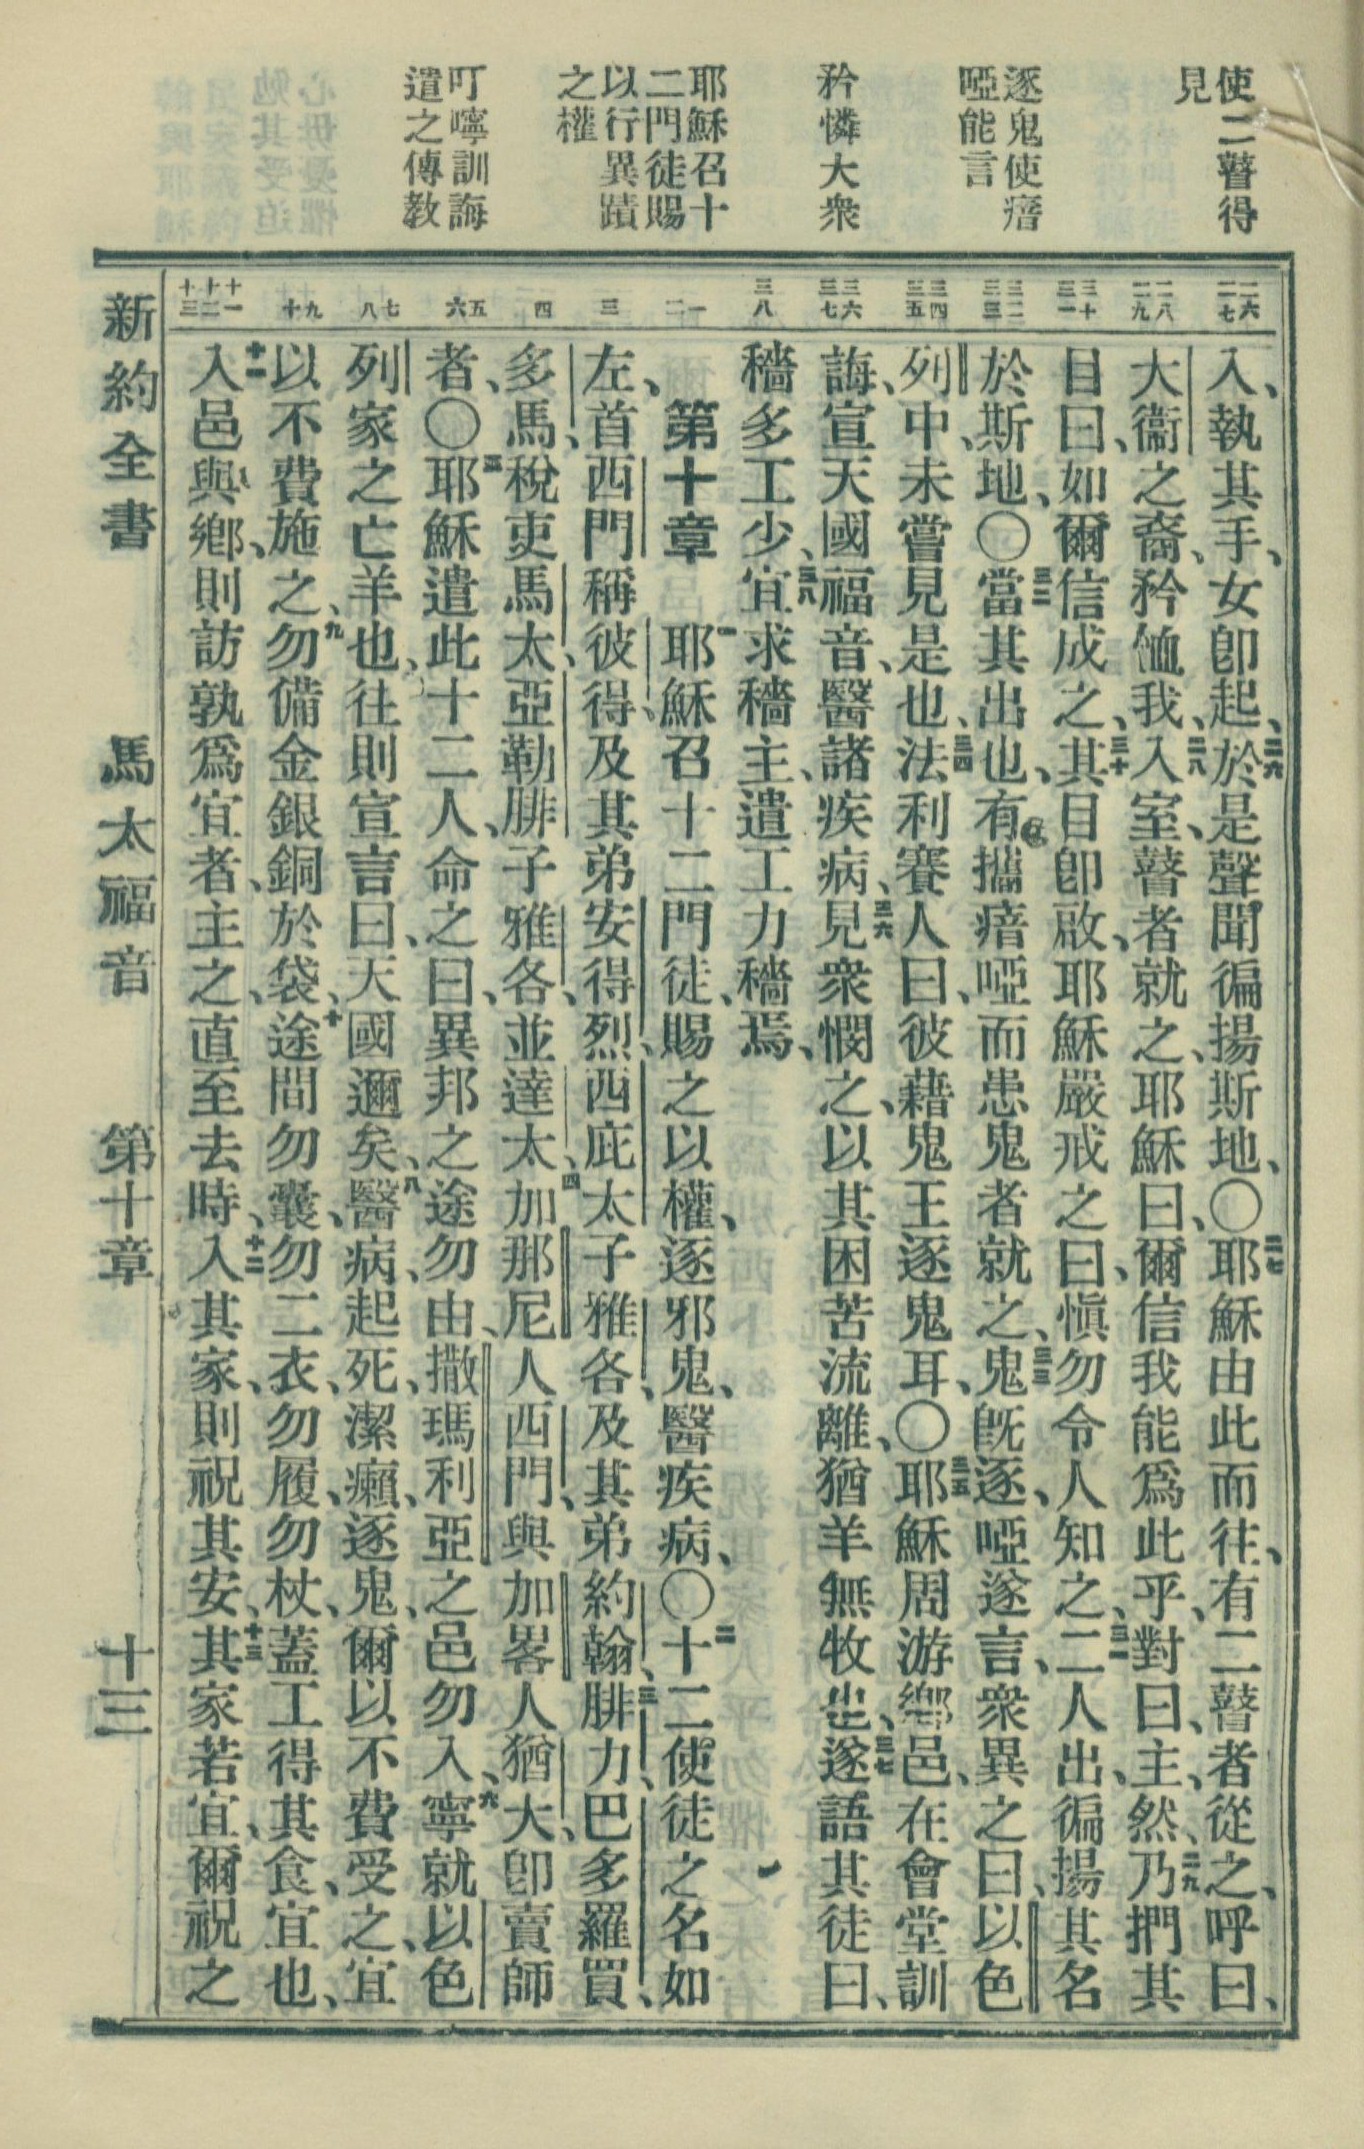 使二瞽得
見
逐鬼使瘖
啞能言
矜憐大衆
耶穌召十
二門徒賜
以行異蹟
之權
叮嚀訓誨
遣之傳教
二六 二七
二八 二九
三十 三一
三二 三三
三四 三五
三六 三七
三八
一 二
三
四
五 六
七 八
九 十
十一 十二 十三
入、執其手、女卽起、二六於是聲聞徧揚斯地、〇二七耶穌由此而往、有二瞽者從之、呼曰、
大衞之裔、矜恤我、二八入室、瞽者就之、耶穌曰、爾信我能爲此乎、對曰、主、然、二九乃捫其
目曰、如爾信成之、三十其目卽啟、耶穌嚴戒之曰、愼勿令人知之、三一二人出、徧揚其名
於斯地、〇三二當其出也、有攜瘖啞而患鬼者就之、三三鬼旣逐、啞遂言、衆異之曰、以色
列中、未嘗見是也、三四法利賽人曰、彼藉鬼王逐鬼耳、〇三五耶穌周游鄕邑、在會堂訓
誨、宣天國福音、醫諸疾病、三六見衆憫之、以其困苦流離、猶羊無牧也、三七遂語其徒曰、
穡多工少、三八宜求穡主、遣工力穡焉、
第十章 一耶穌召十二門徒、賜之以權、逐邪鬼、醫疾病、〇二十二使徒之名如
左、首西門稱彼得、及其弟安得烈、西庇太子雅各、及其弟約翰、三腓力、巴多羅買、
多馬、稅吏馬太、亞勒腓子雅各、並達太、四加那尼人西門、與加畧人猶大、卽賣師
者、〇五耶穌遣此十二人、命之曰、異邦之途勿由、撒瑪利亞之邑勿入、六寧就以色
列家之亡羊也、七往則宣言曰、天國邇矣、八醫病、起死、潔癩、逐鬼、爾以不費受之、宜
以不費施之、九勿備金銀銅於袋、十途間勿囊、勿二衣、勿履、勿杖、蓋工得其食、宜也、
十一入邑與鄕、則訪孰爲宜者、主之、直至去時、十二入其家、則祝其安、十三其家若宜、爾祝之
新約全書 馬太福音 第十章 十三